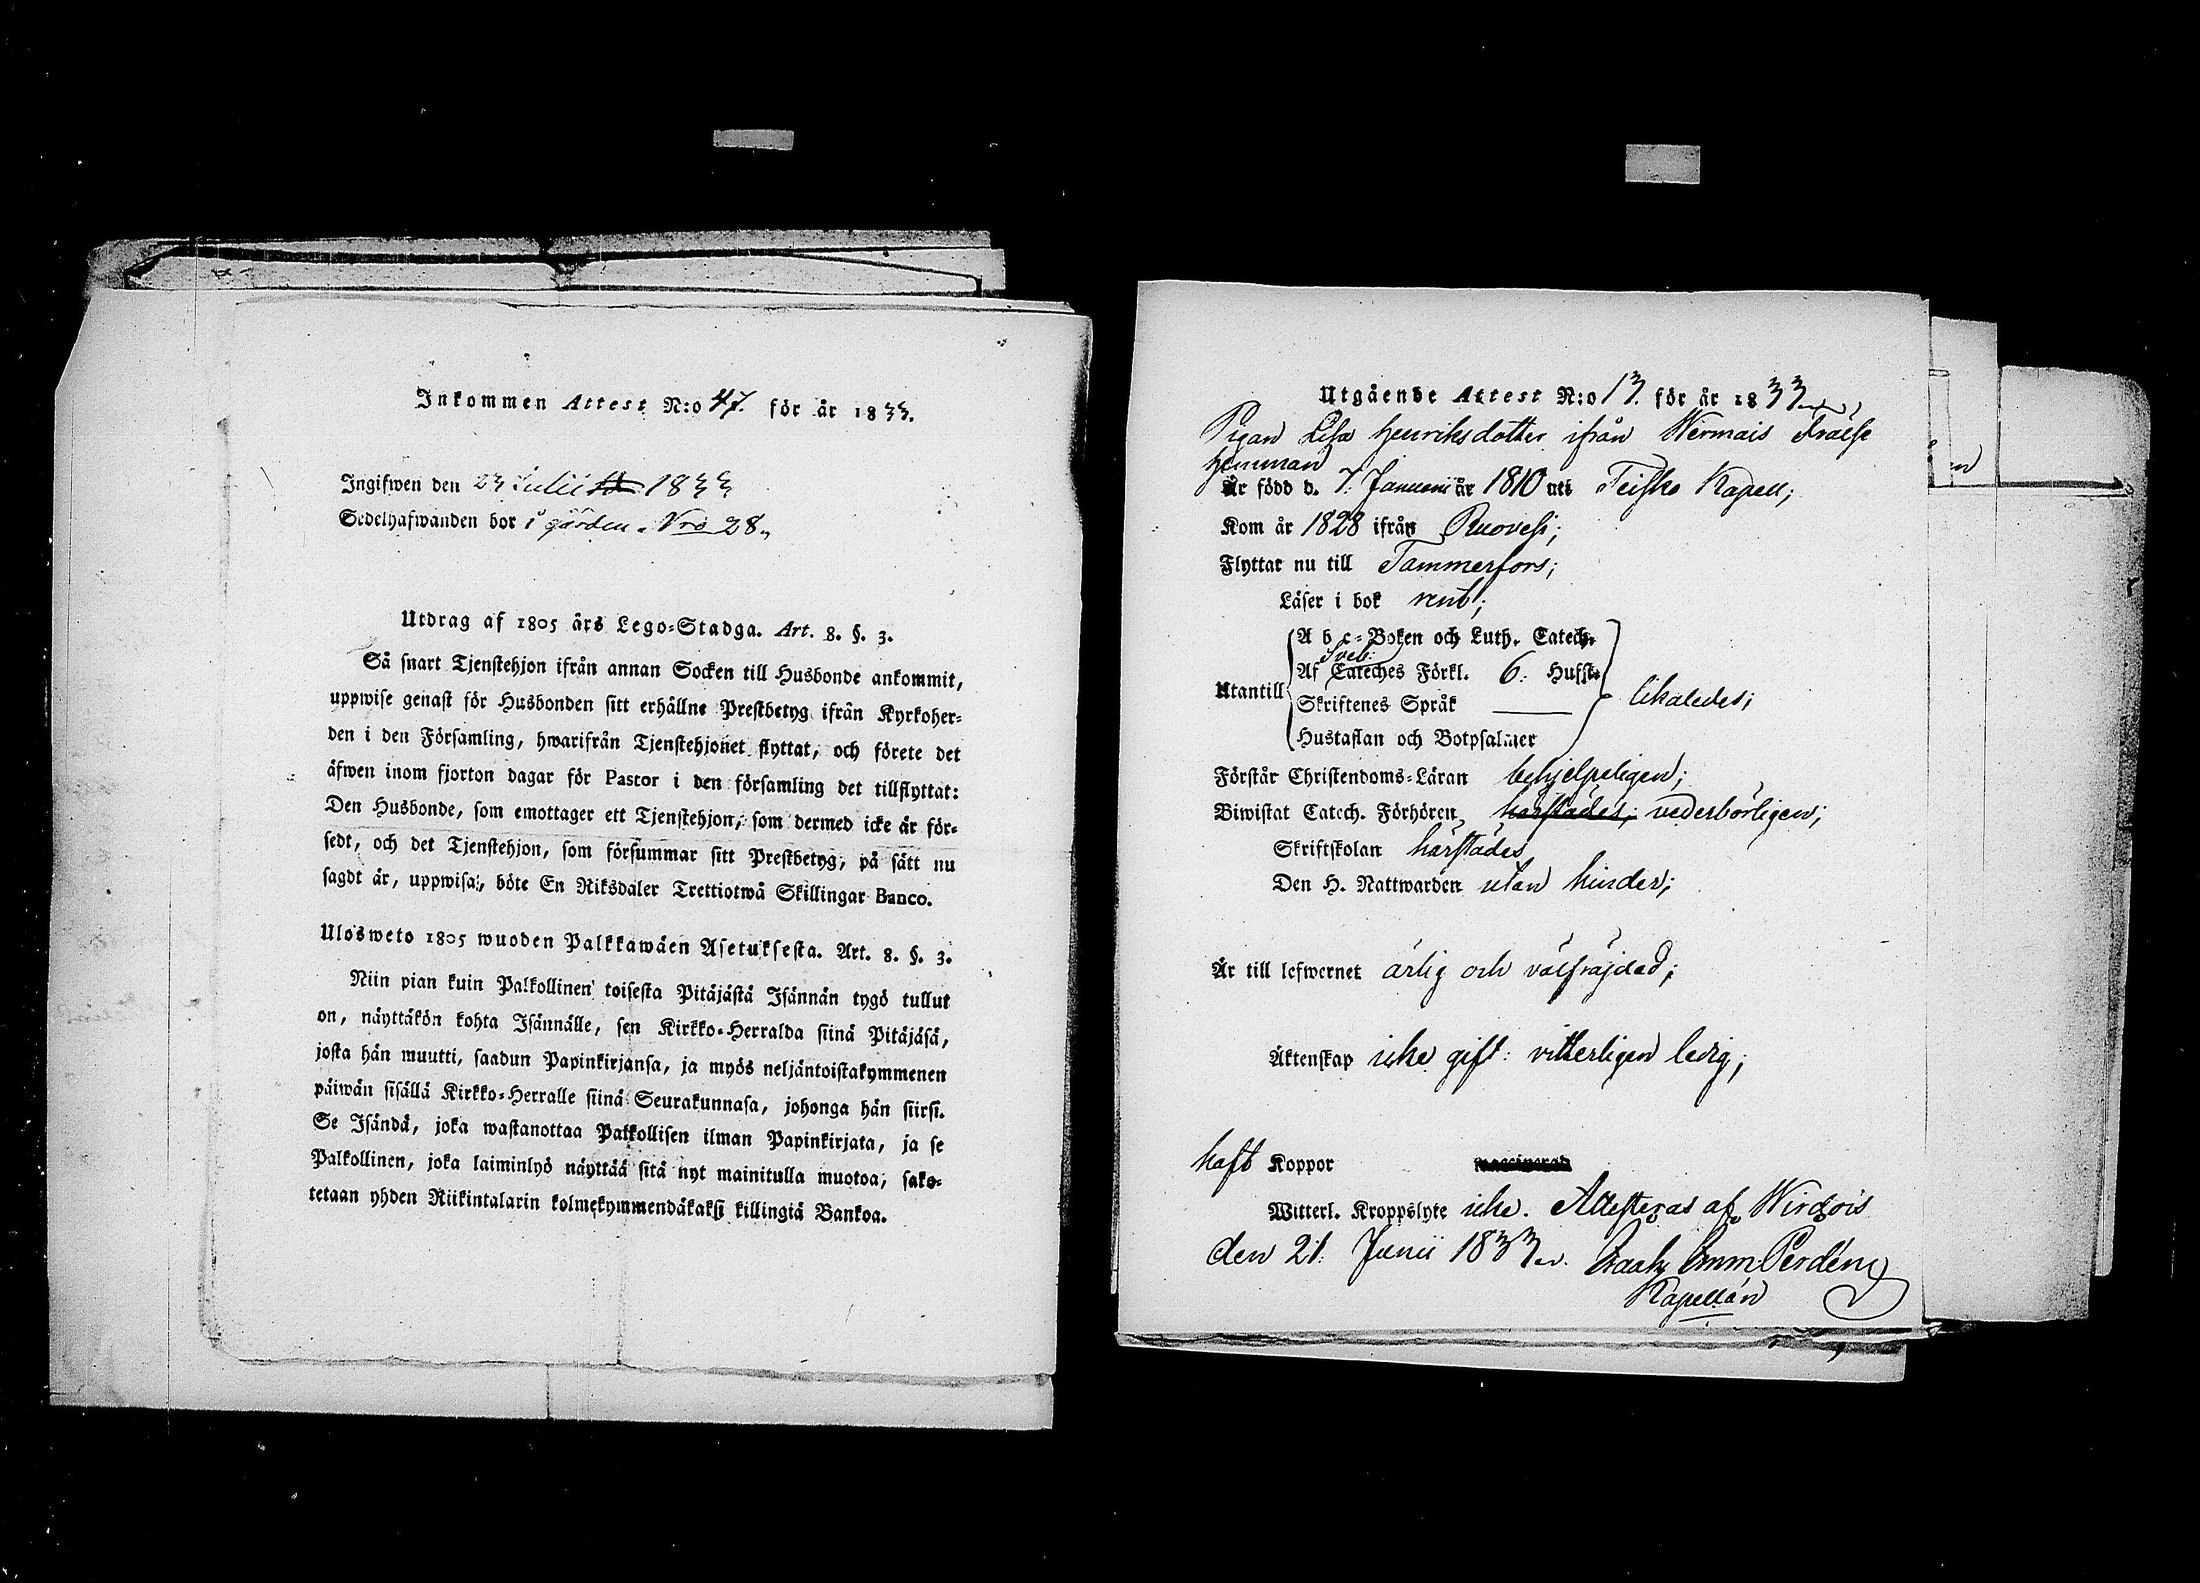 Inkommen Attest N:o 47. för år 1833.
Ingifwen den 23 Julii 1833
Sedelhafwanden bor i gården Nro 28.
Utdrag af 1805 års Lego-Stadga. Art. 8. §. 3.
Så snart Tjenstehjon ifrån annan Socken till Husbonde ankommit,
uppwise genast för Husbonden sitt erhållne Prestbetyg ifrån Kyrkoher-
den i den Församling, hwarifrån Tjenstehjonet flyttat, och förete det
äfwen inom fjorton dagar för Pastor i den församling det tillflyttat:
Den Husbonde, som emottager ett Tjenstehjon, som dermed icke är för-
sedt, och det Tjenstehjon, som försummar sitt Prestbetyg, på sätt nu
sagdt är, uppwisa, böte En Riksdaler Trettiotwå Skillingar Banco.
Ulosweto 1805 wuoden Palkkawäen Asetuksesta. Art. 8. §. 3.
Niin pian kuin Palkollinen toisesta Pitäjästä Isännän tygö tullut
on, näyttäkön kohta Isännälle, sen Kirkko-Herralda siinä Pitäjäsä,
josta hän muutti, saadun Papinkirjansa, ja myös neljäntoistakymmenen
päiwän sisällä Kirkko-Herralle siinä Seurakunnasa, johonga hän siirsi.
Se Isändä, joka wastanottaa Palkollisen ilman Papinkirjata, ja se
Palkollinen, joka laiminlyö näyttää sitä nyt mainitulla muotoa, sako-
tetaan yhden Riikintalarin kolmekymmendäkaksi killingiä Bankoa.
Utgående Attest N:o 13. för år 1833.
Pigan Lisa Henriksdotter ifrån Wermais Frälse
hemman
Är född d. 7. Januarii år 1810 uti Teisko Kapell;
Kom år 1828 ifrån Ruovesi;
Flyttar nu till Tammerfors;
Läser i bok rent;
A b c-Boken och Luth. Catech.
Sveb:
Af Cateches Förkl. 6. Hufst.
Utantill Skriftenes Språk — likaledes;
Hustaflan och Botpsalmer
Förstår Christendoms-Läran behjelpeligen;
Biwistat Catech. Förhören härstädes; vederbörligen;
Skriftskolan härstädes
Den H. Nattwarden utan hinder;
Är till lefwernet ärlig och välfräjdad;
Äktenskap icke gift: vitterligen ledig;
haft Koppor
Witterl. Kroppslyte icke. Attesteras af Wirdois
den 21. Junii 1833. Isaak Emm Perdén
Kapellán